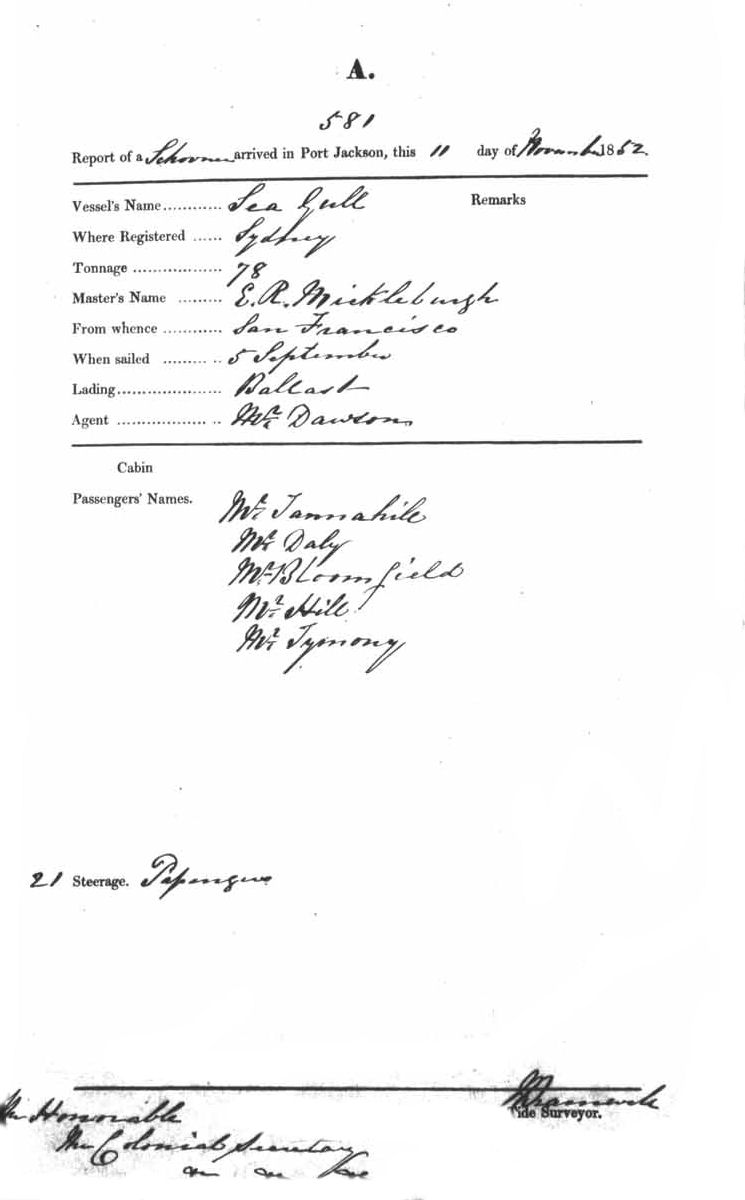 A.
581
Report of a Schooner arrived in Port Jackson, this 11 day of November 1852.
Vessel's Name............ Sea Gull Remarks
Where Registered ...... Sydney
Tonnage .................. 78
Master's Name ......... E. R. Mickleburgh
From whence ............ San Francisco
When sailed ......... .. 5 September
Lading...................... Ballast
Agent .................. .. Mr. Dawson
Cabin
Passengers' Names. Mr. Tannahill
Mr. Daly
Mr. Bloomfield
Mr. Hill
Mr. Tymony
21 Steerage. Passengers
ide Surveyor.
The Honorable
The Colonial Secretary